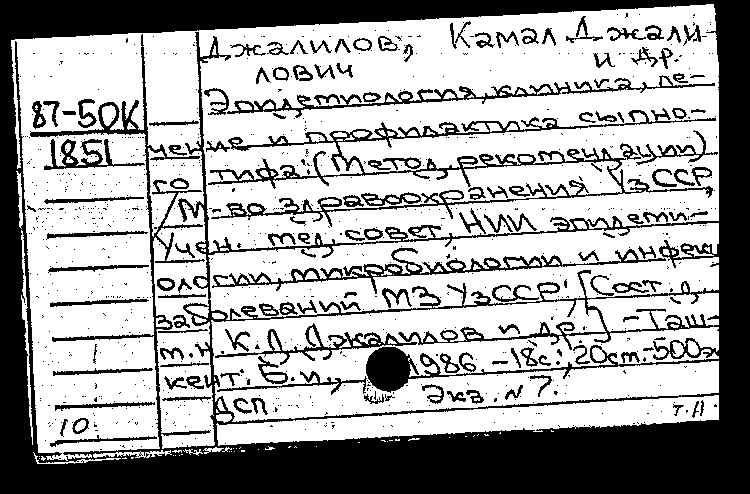 Джалилов, Камал Джали-
лович и др.
Эпидемиология, клиника, ле-
87-50К
чение и профилактика сыпно-
1851
го тифа: (Метод. рекомендации)
/М-во здравоохранения УзССР,
Учен. мед. совет, НИИ эпидеми-
ологии, микробиологии и инфекц.
заболеваний МЗ УзССР; [Сост. д.
м.н. К.Д. Джалилов и др.] - Таш-
кент: Б.и., 1986. - 18с.; 20см. - 500э
ДСП. Экз. № 7.
10 т.п.